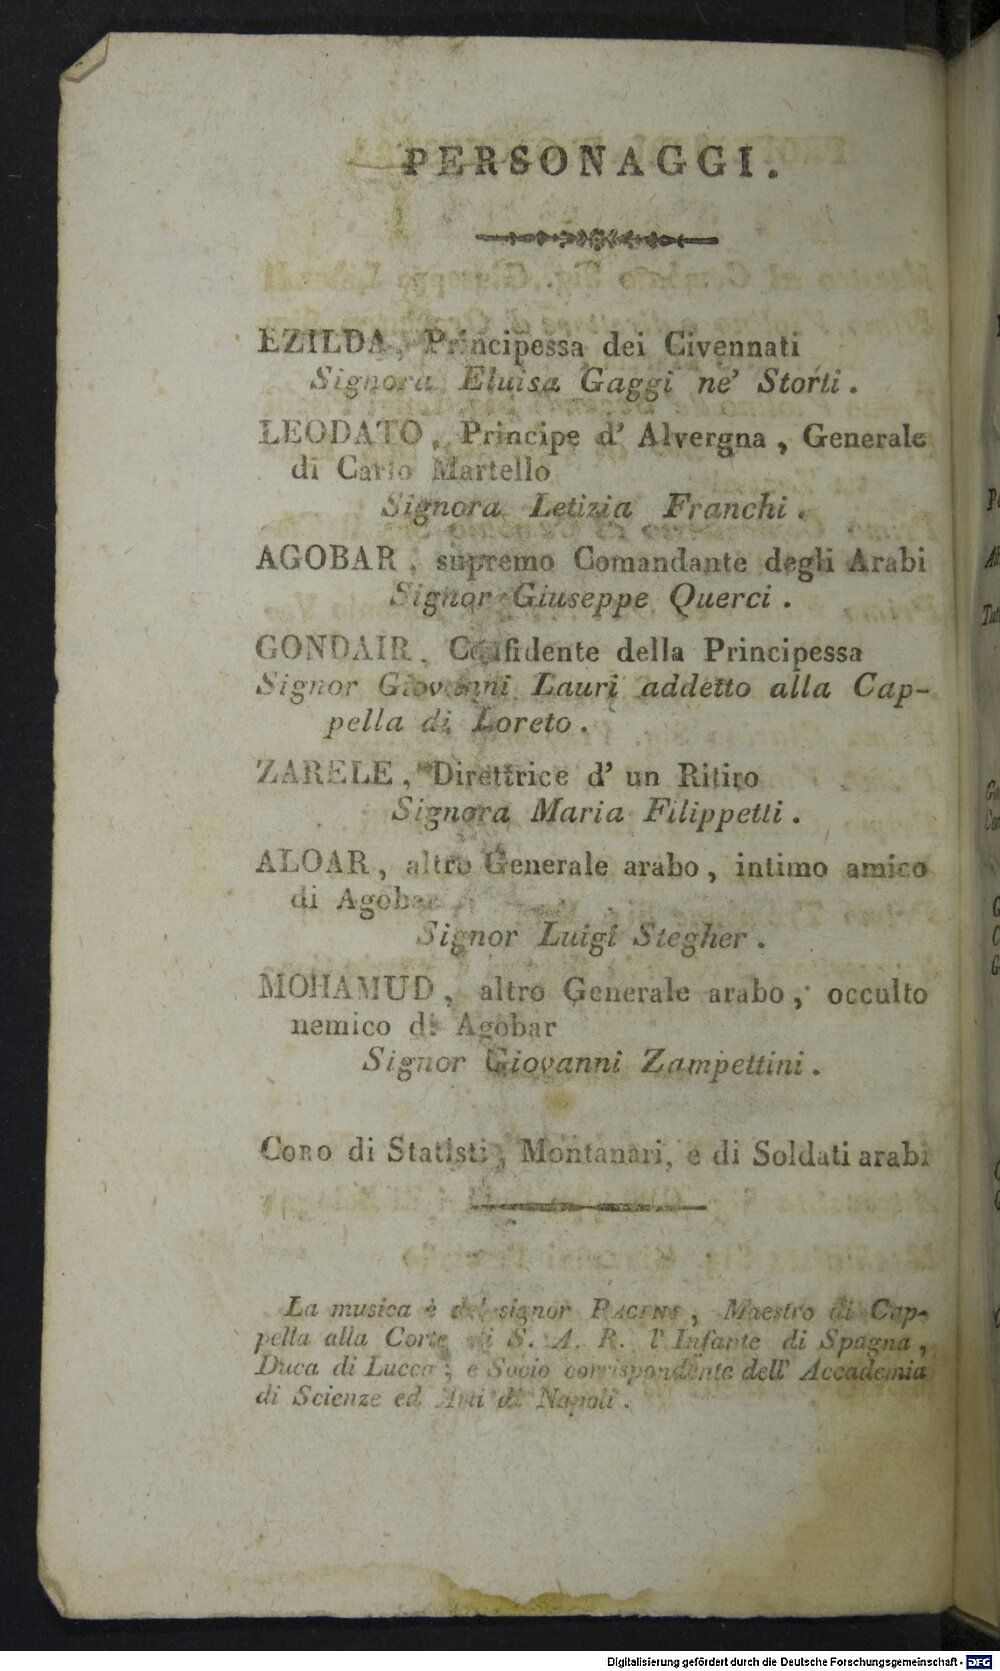 PERSONAGGI.
EZILDA, Principessa dei Civennati
Signora Eluisa Gaggi ne' Storti.
LEODATO, Principe d' Alvergna, Generale
di Carlo Martello
Signora Letizia Franchi.
AGOBAR, supremo Comandante degli Arabi
Signor Giuseppe Querci.
GONDAIR, Confidente della Principessa
Signor Giovanni Lauri addetto alla Cap-
pella di Loreto.
ZARELE, Direttrice d' un Ritiro
Signora Maria Filippetti.
ALOAR, altro Generale arabo, intimo amico
di Agobar
Signor Luigi Stegher.
MOHAMUD, altro Generale arabo, occulto
nemico di Agobar
Signor Giovanni Zampettini.
CORO di Statisti, Montanari, e di Soldati arabi
La musica è del signor PACINI, Maestro di Cap-
pella alla Corte di S. A. R. l' Infante di Spagna,
Duca di Lucca; e Socio corrispondente dell' Accademia
di Scienze ed Arti di Napoli.
Digitalisierung gefördert durch die Deutsche Forschungsgemeinschaft - DFG